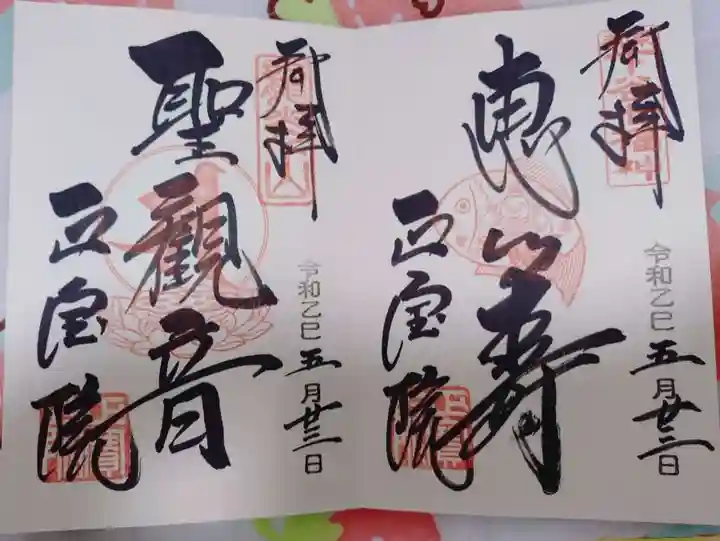 奉拝
恵比寿
令和乙巳五月廿三日
正宝院
奉拝
聖観音
令和乙巳五月廿三日
正宝院